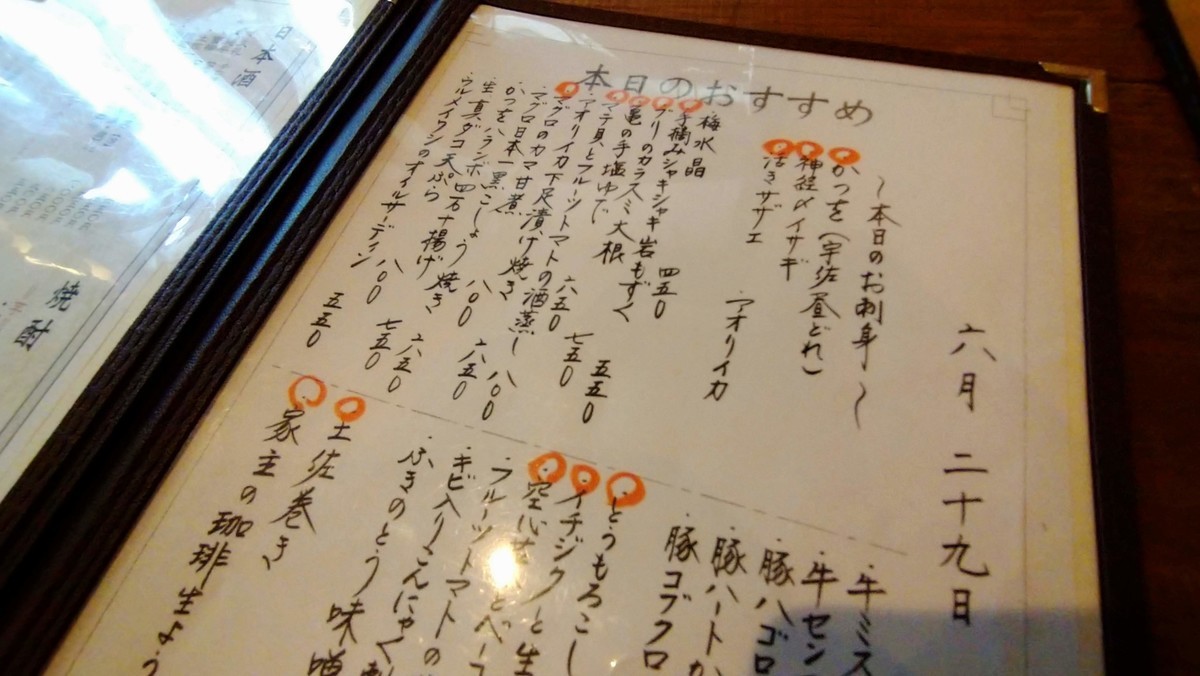 本日のおすすめ
六月二十九日
〜本日のお刺身〜
・かつを(宇佐昼どれ)
・神経〆イサギ
・活きサザエ
・アオリイカ
・梅水晶
・手摘みシャキシャキ岩もずく
・ブリのカラスミ大根
・亀の手塩ゆで
・マテ貝とフルーツトマトの酒蒸し 八〇〇
・アオリイカ下足漬け焼き
・マグロのカマ甘煮
・マグロ日本一黒こしょう焼き
・かつをハランボ四万十揚げ 六五〇
・生真ダコ天ぷら 七五〇
・ウルメイワシのオイルサーディン 五五〇
・牛ミス
・牛セン
・豚ハゴロ
・豚ハートか
・豚コブクロ
・とうもろこし
・イチジクと生
・フルーツトマトの
・キビ入りこんにゃく
・ふきのとう味噌
・土佐巻き
・家主の珈琲生
日本酒
焼酎